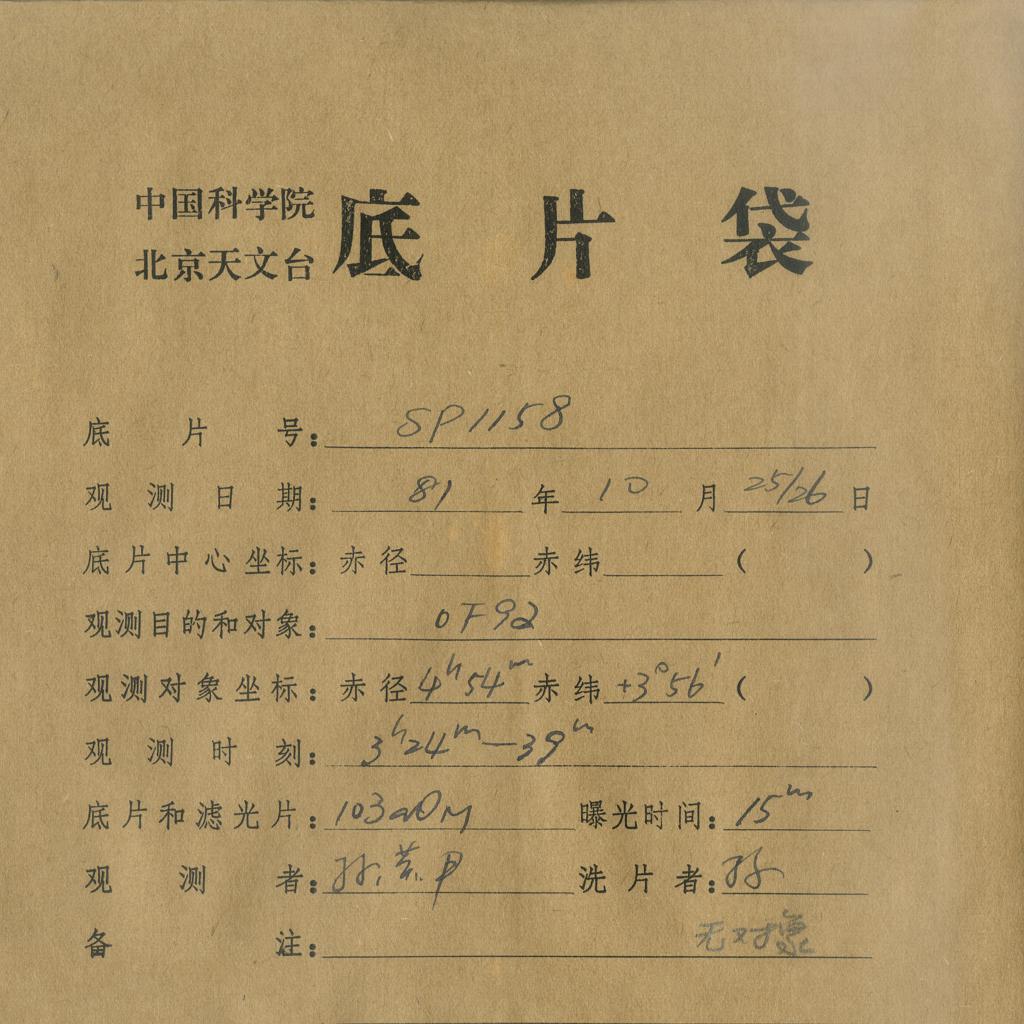 中国科学院
北京天文台
底片袋
底片号：SP1158
观测日期：81年10月25/26日
底片中心坐标：赤径 赤纬 ( )
观测目的和对象：OF92
观测对象坐标：赤径4ʰ54ᵐ赤纬+3°56′( )
观测时刻：3ʰ24ᵐ—39ᵐ
底片和滤光片：103aO 曝光时间：15ᵐ
观测者：孙 洗片者：孙
备注：无对像